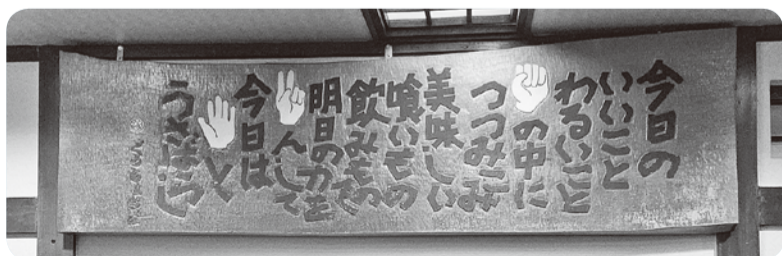 今日の
いいこと
わるいこと
の中に
つつみこみ
美味しい
喰いもの
飲みもので
明日の力を
んして
今日は
と